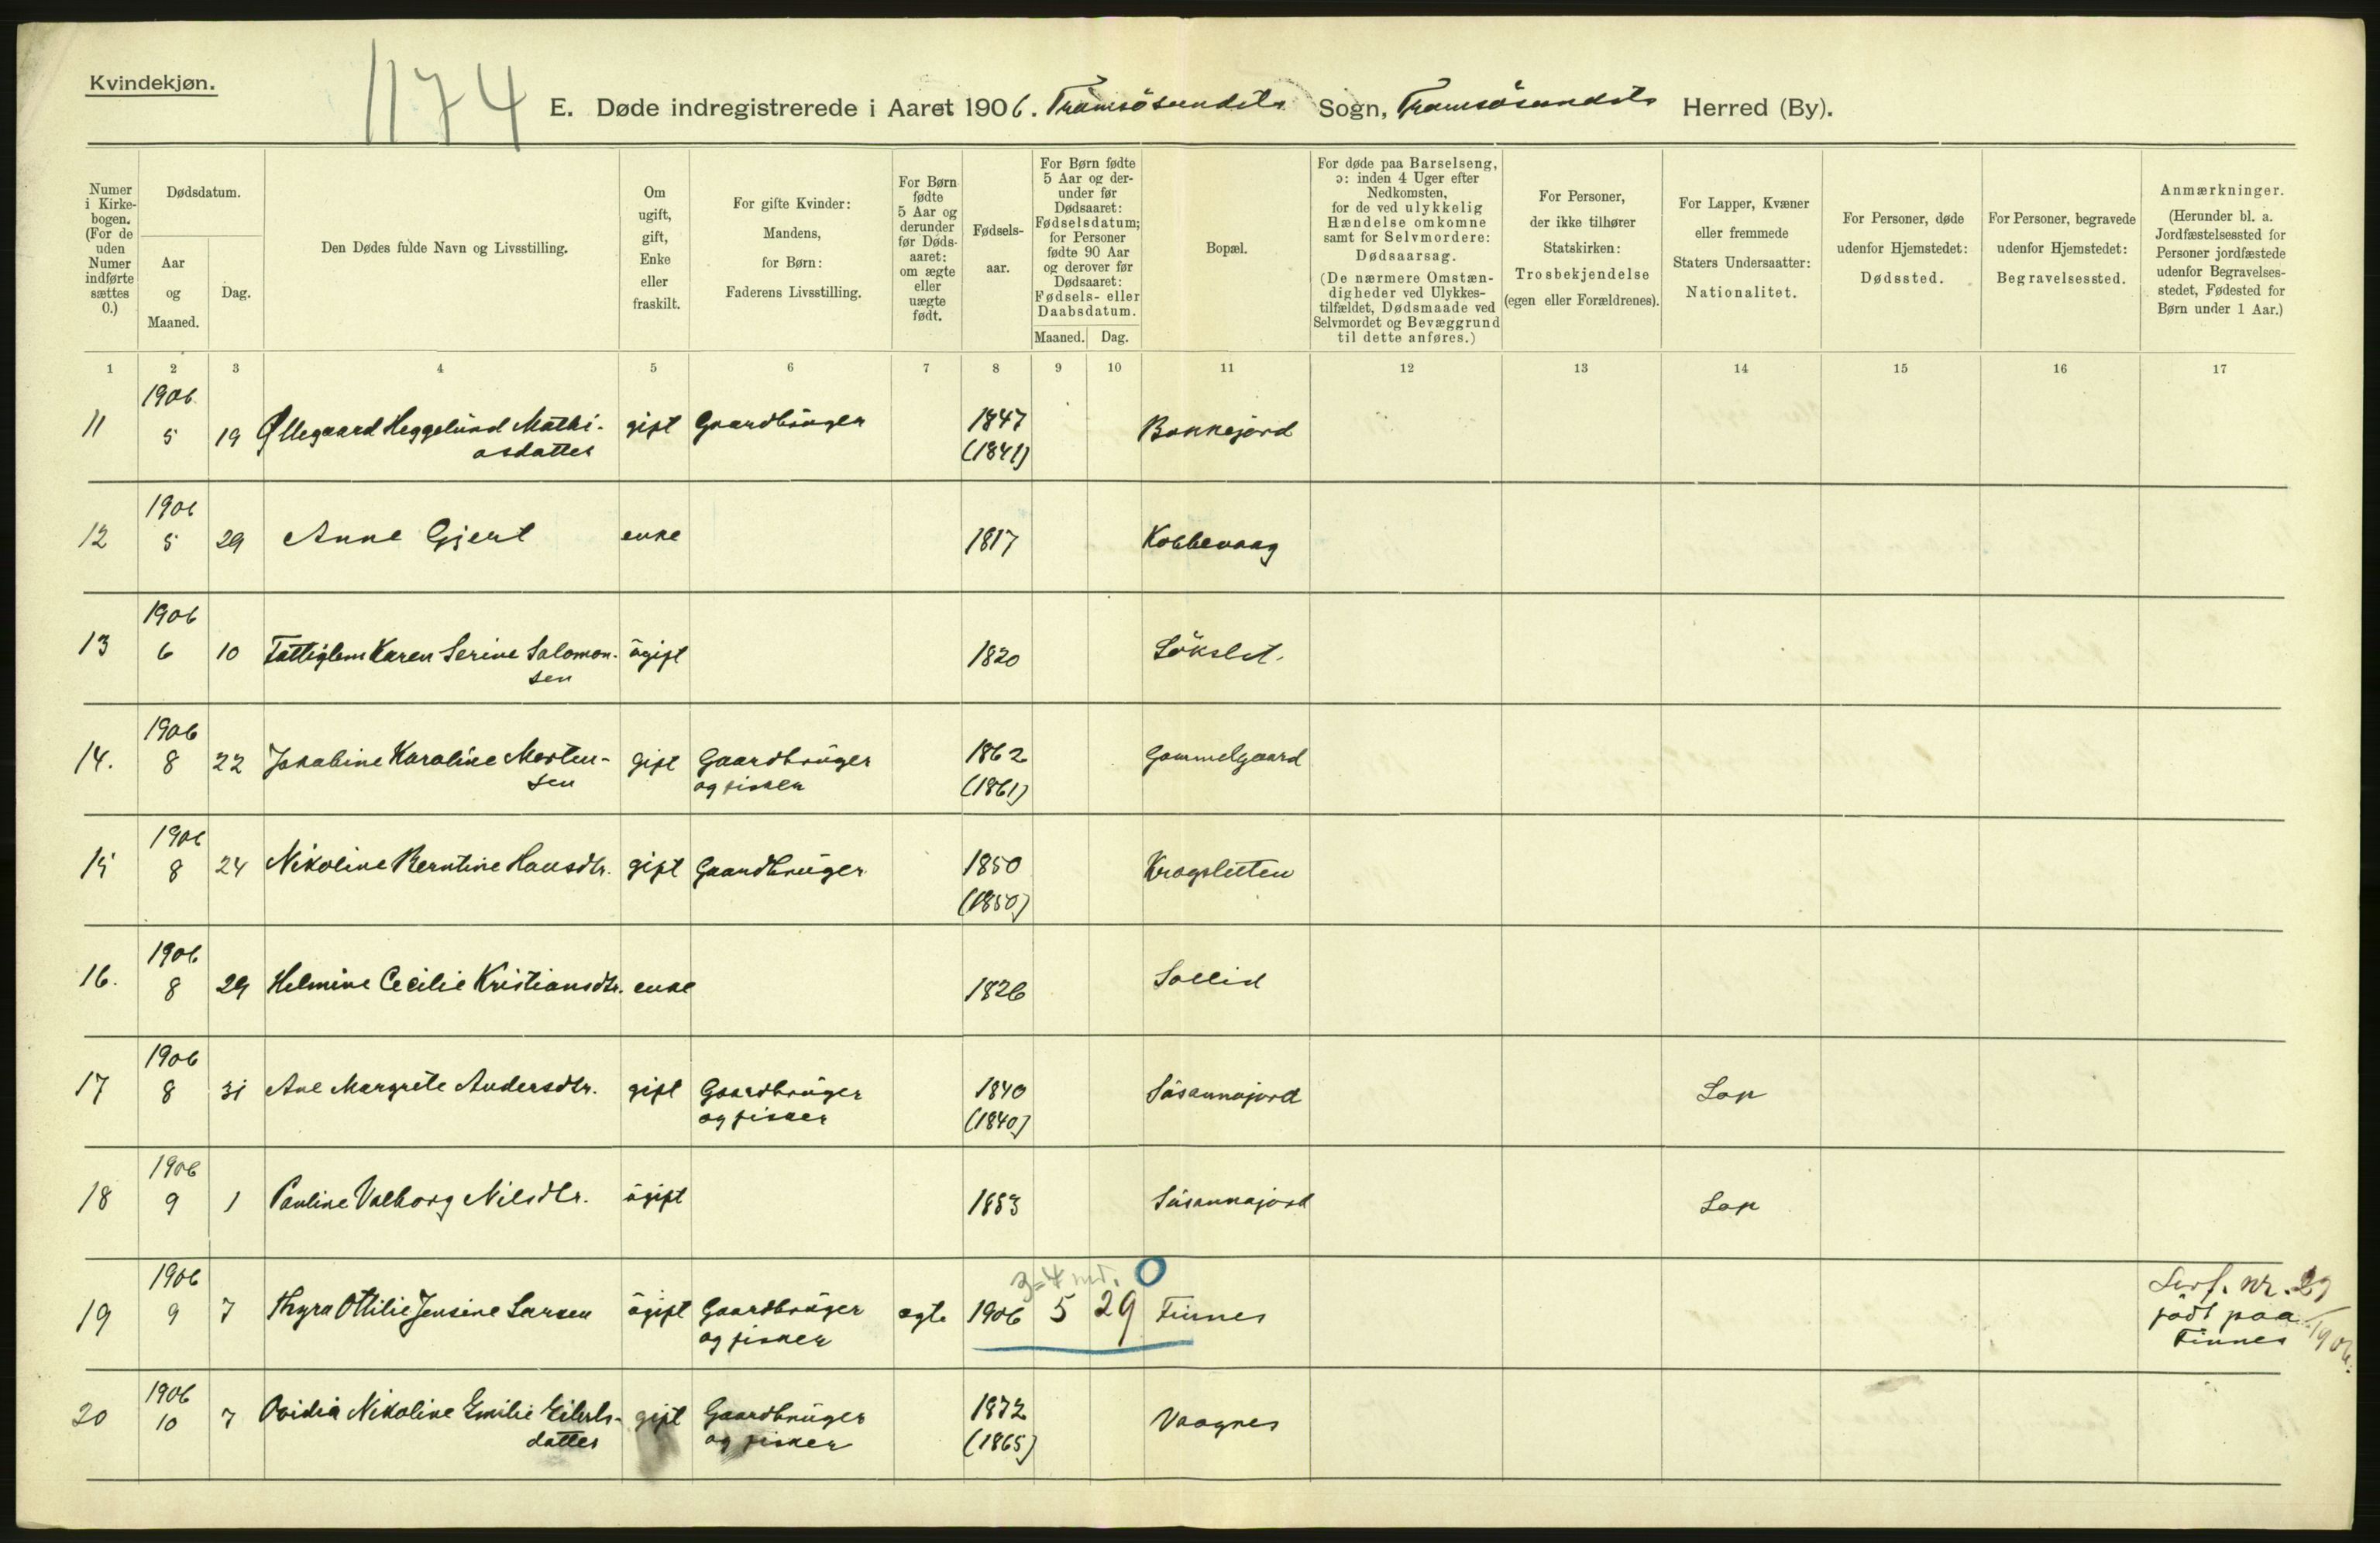 Kvindekjøn.
1174
E. Døde indregistrerede i Aaret 1906. Tromsösundets Sogn, Tromsösundets Herred (By).
Numer i Kirke-bogen. (For de uden Numer indførte sættes 0.)
Dødsdatum.
Aar og Maaned.
Dag.
Den Dødes fulde Navn og Livsstilling.
Om ugift, gift, Enke eller fraskilt.
For gifte Kvinder: Mandens, for Børn: Faderens Livsstilling.
For Børn fødte 5 Aar og derunder før Døds-aaret: om ægte eller uægte født.
Fødsels-aar.
For Børn fødte 5 Aar og der-under før Dødsaaret: Fødselsdatum; for Personer fødte 90 Aar og derover før Dødsaaret: Fødsels- eller Daabsdatum.
Maaned. Dag.
Bopæl.
For døde paa Barselseng, ɔ: inden 4 Uger efter Nedkomsten, for de ved ulykkelig Hændelse omkomne samt for Selvmordere: Dødsaarsag. (De nærmere Omstæn-digheder ved Ulykkes-tilfældet, Dødsmaade ved Selvmordet og Bevæggrund til dette anføres.)
For Personer, der ikke tilhører Statskirken: Trosbekjendelse (egen eller Forældrenes).
For Lapper, Kvæner eller fremmede Staters Undersaatter: Nationalitet.
For Personer, døde udenfor Hjemstedet: Dødssted.
For Personer, begravede udenfor Hjemstedet: Begravelsessted.
Anmærkninger. (Herunder bl. a. Jordfæstelsessted for Personer jordfæstede udenfor Begravelses-stedet, Fødested for Børn under 1 Aar.)
1 2 3 4 5 6 7 8 9 10 11 12 13 14 15 16 17
1906
11 5 19 Ollegaard Heggelund Mathi- gift Gaardbruger 1847 Bakkejord
asdatter (1841)
1906
12 5 29 Anne Gjert enke 1817 Kobbevaag
1906
13 6 10 Fattiglem Karen Serine Salomon- ugift 1820 Lökslet.
sen
1906
14. 8 22 Jakobine Karoline Morten- gift Gaardbruger 1862 Gammelgaard
sen og fisker (1861)
1906
15 8 24 Nikoline Berntine Hansdtr. gift Gaardbruger 1850 Krogsletten
(1850)
1906
16. 8 29 Helmine Cecilie Kristiansdtr. enke 1826 Sollid
1906
17 8 31 Ane Margrete Andersdtr. gift Gaardbruger 1840 Susannajord Lap
og fisker (1840)
1906
18 9 1 Pauline Valborg Nilsdtr. ugift 1883 Susannajord Lap
1906 3-4 md. 0
19 9 7 Thyra Ottilie Jensine Larsen ugift Gaardbruger ægte 1906 5 29 Finnes nr. 29
og fisker født paa Finnes 1906.
1906
20 10 7 Ovidia Nikoline Emilie Eilerts- gift Gaardbruger 1872 Vaagnes
datter og fisker (1865)